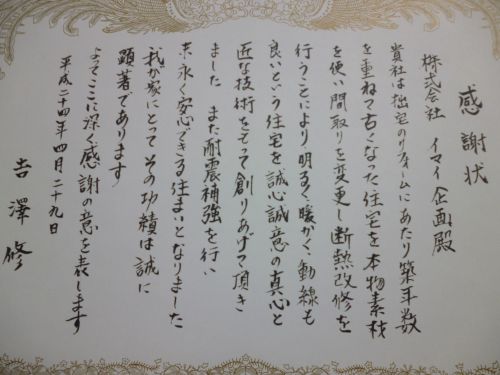 感謝状
株式会社 イマイ企画殿
貴社は拙宅のリフォームにあたり築年数
を重ねて古くなった住宅を本物素材
を使い間取りを変更し断熱改修を
行うことにより明るく暖かく動線も
良いという住宅を誠心誠意の真心と
匠な技術をもって創りあげて頂き
ました また耐震補強を行い
末永く安心できる住まいとなりました
我が家にとってその功績は誠に
顕著であります
よってここに深く感謝の意を表します
平成二十四年四月二十九日
吉澤修